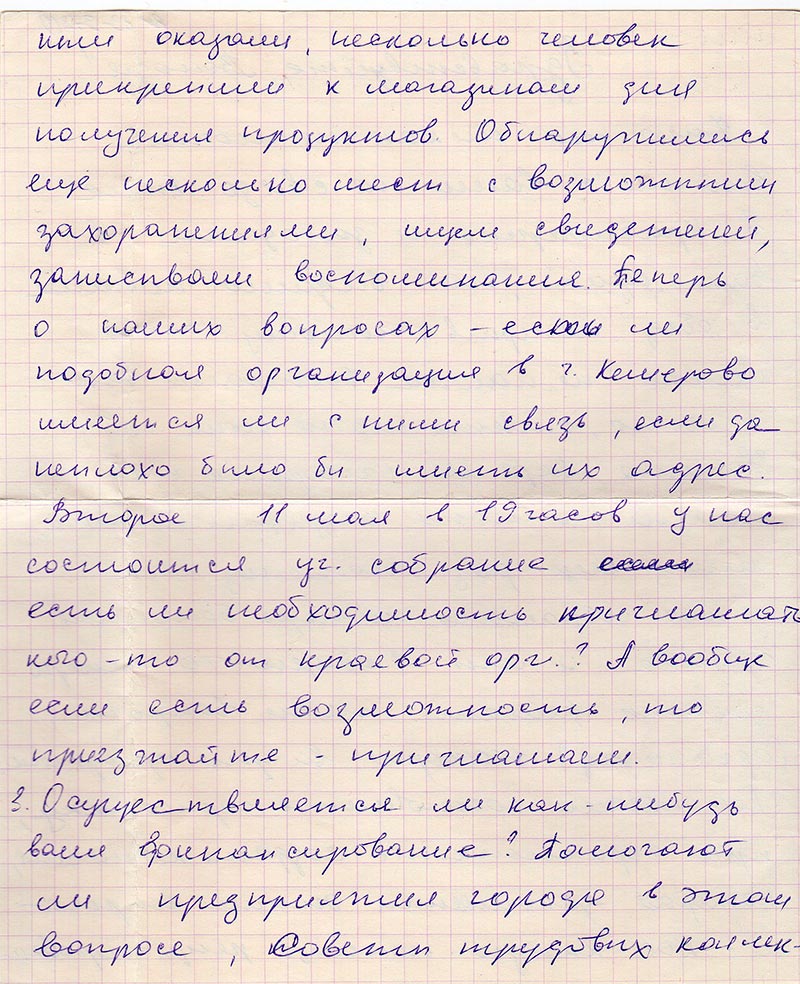 или оказали, несколько человек
прикрепили к магазинам для
получения продуктов. Обнаружились
еще несколько мест с возможными
захоранениями, ищем свидетелей,
записываем воспоминания. Теперь
о наших вопросах – если ли
подобная организация в г. Кемерово
имеется ли с ними связь, если да
неплохо было бы иметь их адрес.
Второе 11 мая в 19 часов у нас
состоится уч. собрание
есть ли необходимость приглашать
кого-то от краевой орг.? А вообще
если есть возможность, то
приезжайте - приглашаем.
3. Осуществляется ли как-нибудь
ваше финансирование? Помогают
ли предприятия города в этом
вопросе, Советы трудовых коллек-